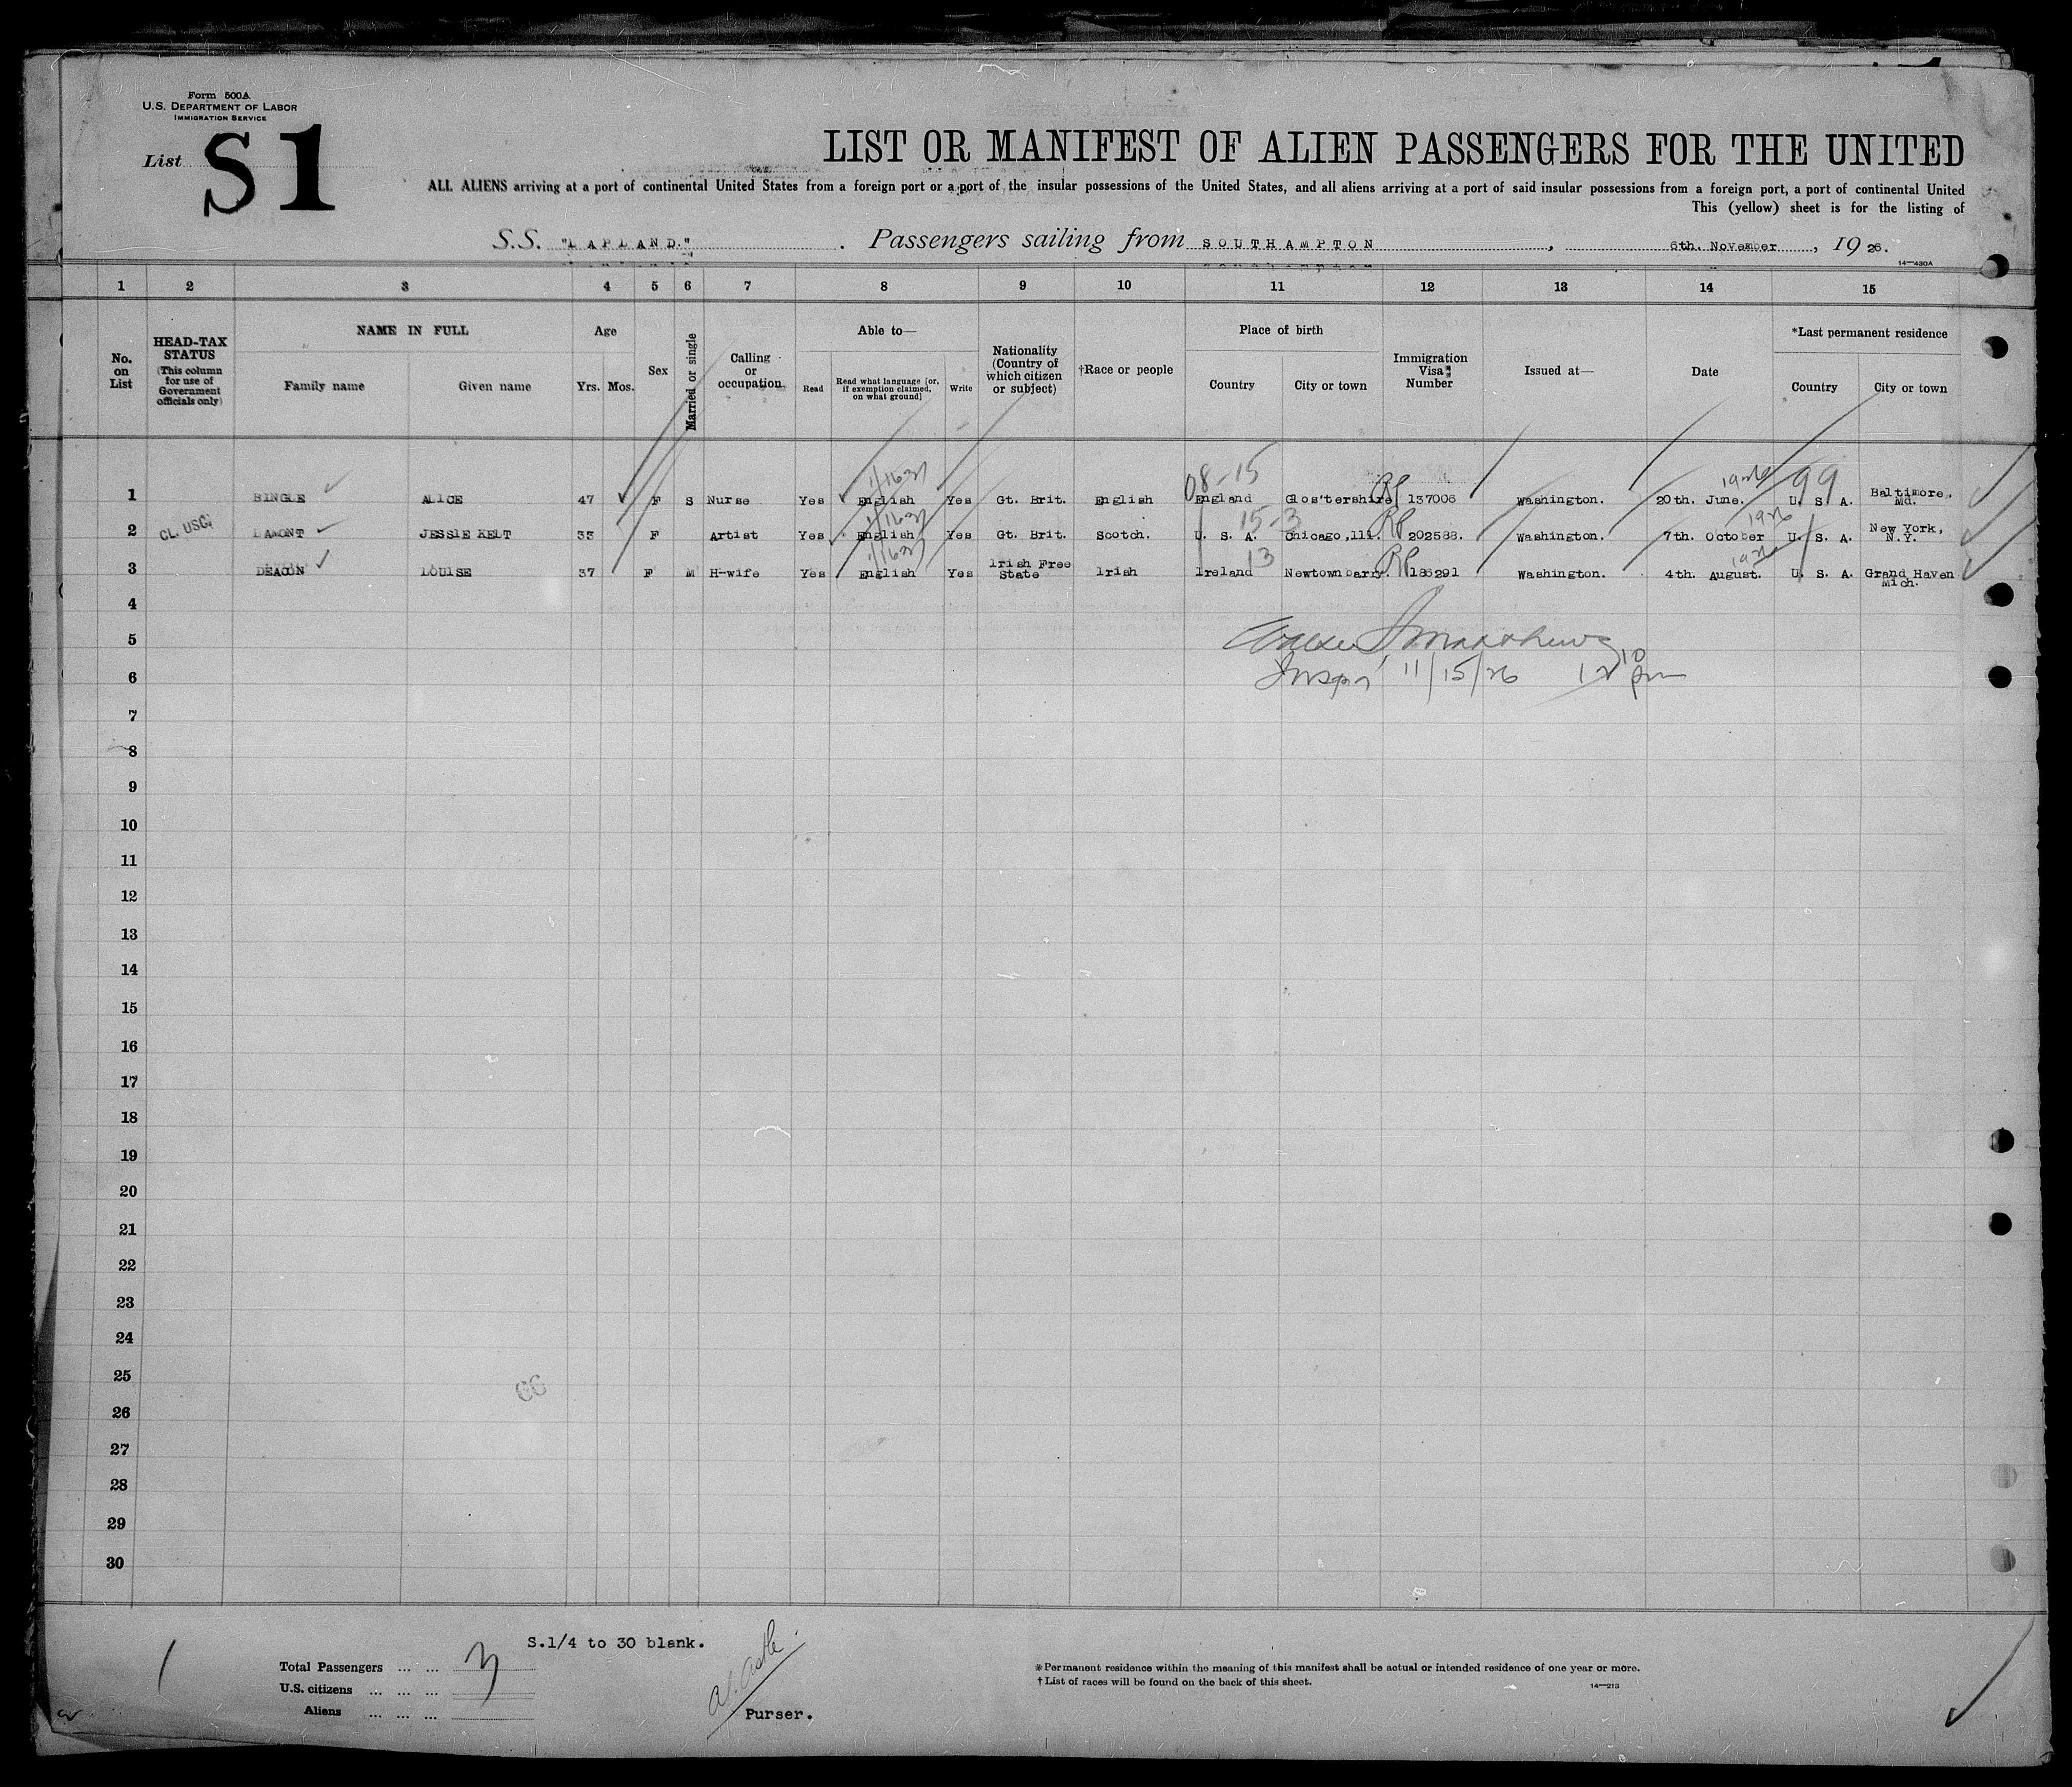 Form 500A
U.S. DEPARTMENT OF LABOR
IMMIGRATION SERVICE
List S1
LIST OR MANIFEST OF ALIEN PASSENGERS FOR THE UNITED
ALL ALIENS arriving at a port of continental United States from a foreign port or a port of the insular possessions of the United States, and all aliens arriving at a port of said insular possessions from a foreign port, a port of continental United
This (yellow) sheet is for the listing of
S.S. "LAPLAND." Passengers sailing from SOUTHAMPTON, 6th. November, 19 26.
14—430A
1 2 3 4 5 6 7 8 9 10 11 12 13 14 15
No. on List
HEAD-TAX STATUS (This column for use of Government officials only)
NAME IN FULL
Family name Given name
Age
Yrs. Mos.
Sex
Married or single
Calling or occupation
Able to—
Read
Read what language [or, if exemption claimed, on what ground]
Write
Nationality (Country of which citizen or subject)
†Race or people
Place of birth
Country City or town
Immigration Visa Number
Issued at—
Date
*Last permanent residence
Country City or town
08-15 1926 99
1 BINGLE ALICE 47 F S Nurse Yes English Yes Gt. Brit. English England Glos'tershire RP 137006 Washington. 20th. June. U. S. A. Baltimore, Md.
15-3 1926
2 CL. USC. LAMONT JESSIE KELT 33 F Artist Yes English Yes Gt. Brit. Scotch. U. S. A. Chicago, Ill. RP 202588. Washington. 7th. October U. S. A. New York, N.Y.
13 1926
3 DEACON LOUISE 37 F M H-wife Yes English Yes Irish Free State Irish Ireland Newtownbarry. RP 186291 Washington. 4th. August. U. S. A. Grand Haven Mich.
4
5 Matthews
6 Inspr 11/15/26 12 10 pm
7
8
9
10
11
12
13
14
15
16
17
18
19
20
21
22
23
24
25
66
26
27
28
29
30
S.1/4 to 30 blank.
Total Passengers ... ... 3
U.S. citizens ... ... ...
Aliens ... ... ...
Purser.
*Permanent residence within the meaning of this manifest shall be actual or intended residence of one year or more.
†List of races will be found on the back of this sheet.
14—213